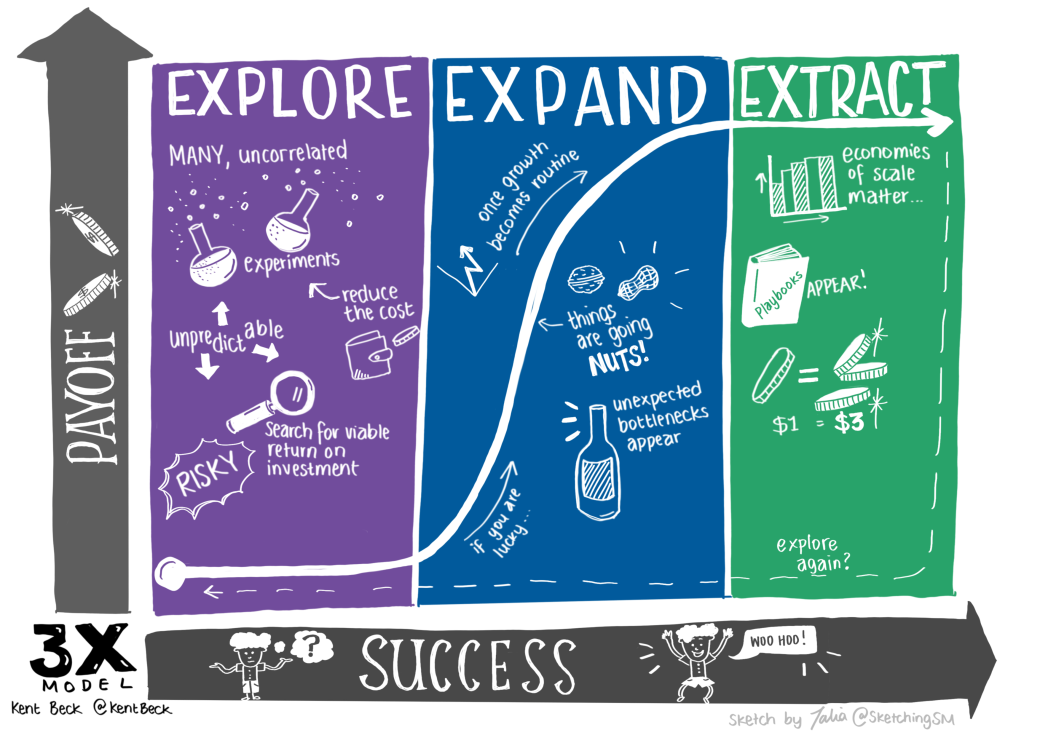 EXPLORE
MANY, uncorrelated
experiments
reduce
the cost
unpredictable
Search for viable
return on
investment
RISKY
EXPAND
once growth
becomes routine
things
are going
NUTS!
unexpected
bottlenecks
appear
if you are
lucky...
EXTRACT
economies
of scale
matter...
Playbooks
APPEAR!
=
$1 = $3
explore
again?
PAYOFF
$
$
3X
MODEL
Kent Beck @KentBeck
?
SUCCESS
WOO HOO!
Sketch by Talia @SketchingSM